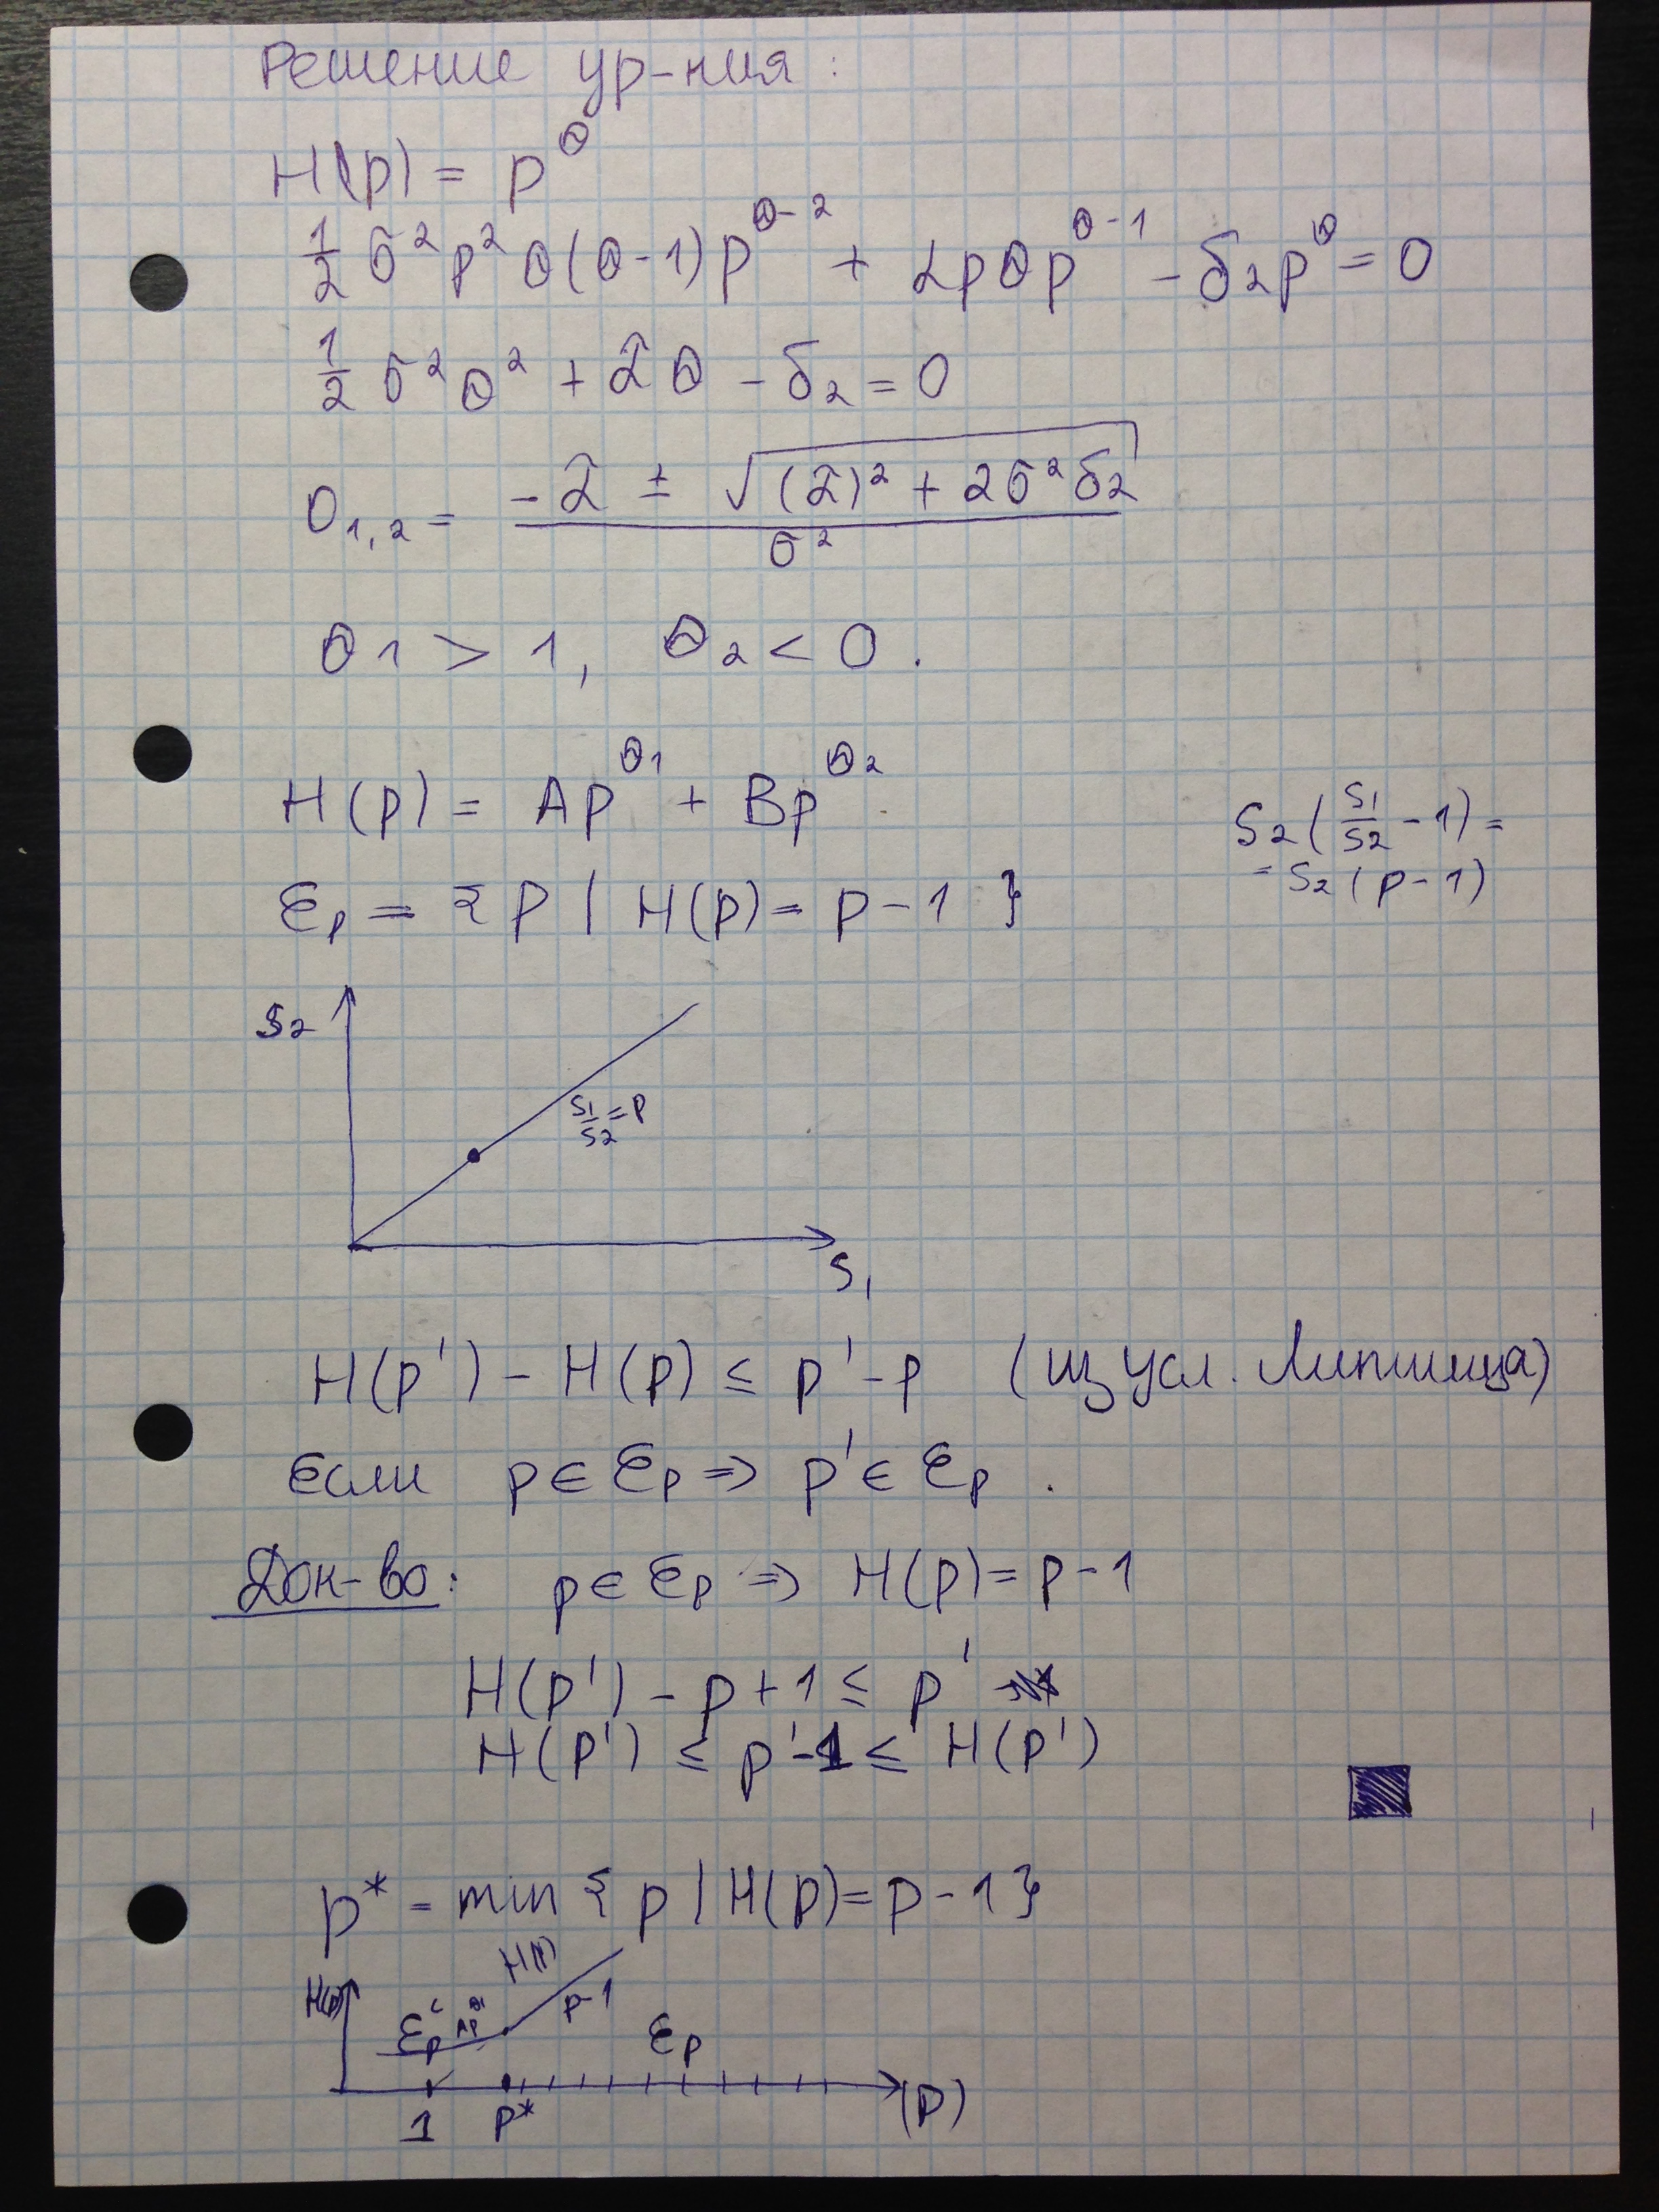 Решение ур-ния:
H(p) = p^θ
1/2 σ² p² θ(θ-1)p^(θ-2) + αpθp^(θ-1) - δ₂p^θ = 0
1/2 σ²θ² + α̂θ - δ₂ = 0
θ₁,₂ = (-α̂ ± √((α̂)² + 2σ²δ₂)) / σ²
θ₁ > 1, θ₂ < 0.
H(p) = Ap^θ₁ + Bp^θ₂
S₂(S₁/S₂ - 1) =
= S₂(p-1)
Ɛp = {p | H(p) = p - 1}
S₂
S₁/S₂ = p
S₁
H(p') - H(p) ≤ p' - p (из усл. Липшица)
Если p ∈ Ɛp ⇒ p' ∈ Ɛp.
Док-во: p ∈ Ɛp ⇒ H(p) = p - 1
H(p') - p + 1 ≤ p'
H(p') ≤ p' - 1 ≤ H(p')
p* = min {p | H(p) = p - 1}
H(p)
p-1
H(p)
Ɛp^c
Ap^θ₁
Ɛp
1
p*
(p)